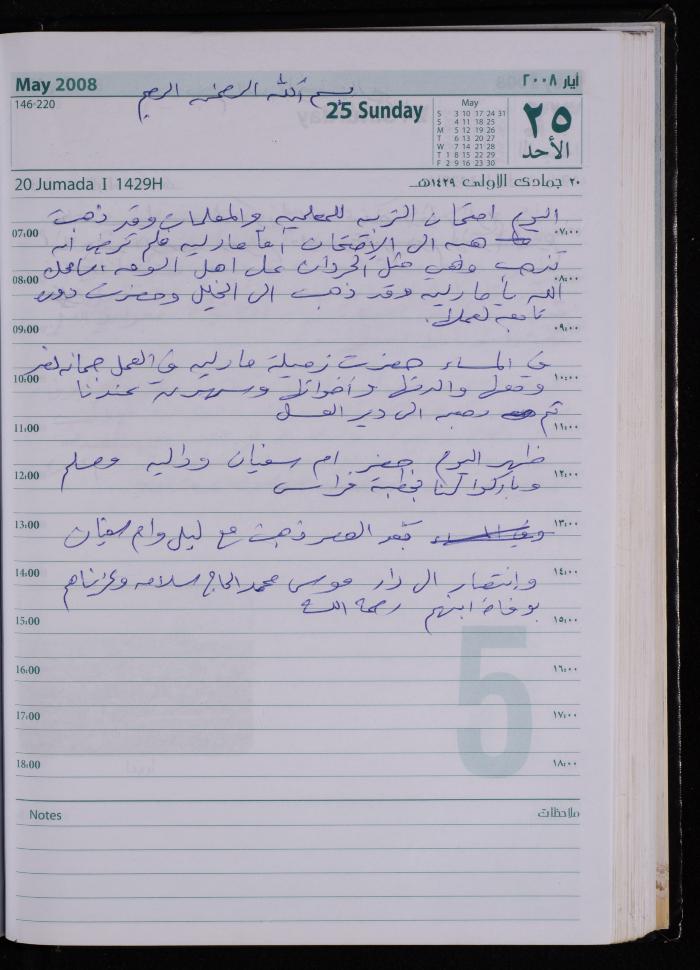 بسم الله الرحمن الرحيم
May 2008
أيار ٢٠٠٨
146-220
25 Sunday
May
S 3 10 17 24 31
S 4 11 18 25
M 5 12 19 26
T 6 13 20 27
W 7 14 21 28
T 1 8 15 22 29
F 2 9 16 23 30
٢٥
الأحد
20 Jumada I 1429H
٢٠ جمادى الاولى ١٤٢٩هـ
اليوم امتحان التربيه للمعلمين والمعلمات وقد ذهبت
07:00 ٠٧:٠٠
هبه الى الإمتحان أما مارليه فلم ترض أن
تذهب وهي مثل الحردان على اهل
08:00 ٠٨:٠٠
الله يا مارليه وقد ذهبت الى الخليل وحضرت دوره
تابعه لعملها.
09:00 ٠٩:٠٠
في المساء حضرت زميلة مارليه في العمل جمانه
10:00 ١٠:٠٠
ومعها والدتها وأخواتها وسهرت عندنا
ثم الى دير العسل
11:00 ١١:٠٠
ظهر اليوم حضر ام سفيان وداليه
12:00 ١٢:٠٠
وباركوا لنا بخطبة فراس
13:00 ١٣:٠٠
وفي المساء بعد العصر ذهبت مع ليلى وام سفيان
14:00 ١٤:٠٠
وانتصار الى دار موسى محمد الحاج سلامه وعزيناهم
بوفاة ابنهم رحمه الله
15:00 ١٥:٠٠
5
16:00 ١٦:٠٠
17:00 ١٧:٠٠
18:00 ١٨:٠٠
Notes ملاحظات